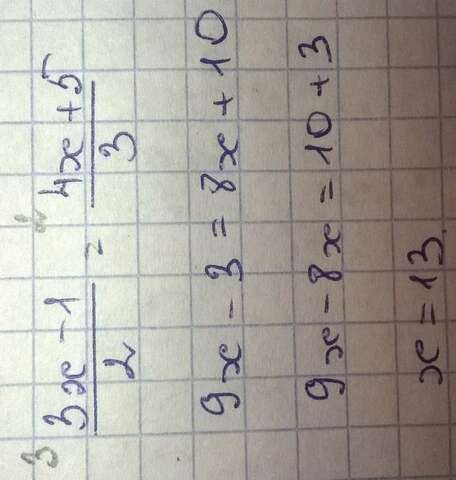 3 (3x - 1)/2 = 2 (4x + 5)/3
9x - 3 = 8x + 10
9x - 8x = 10 + 3
x = 13.